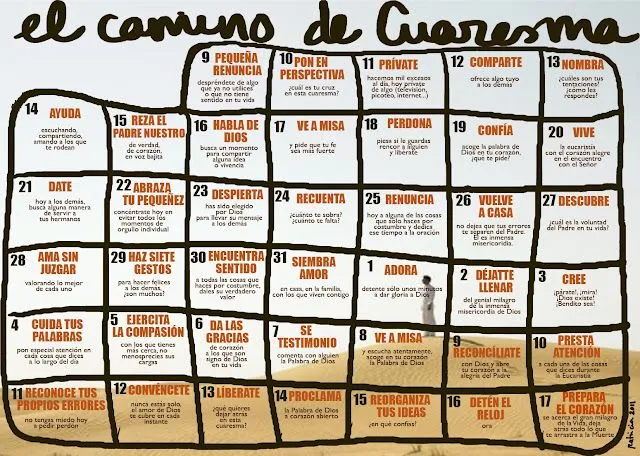 el camino de Cuaresma
9 PEQUEÑA
RENUNCIA
despréndete de algo
que ya no utilices
o que no tiene
sentido en tu vida
10 PON EN
PERSPECTIVA
¿cuál es tu cruz
en esta cuaresma?
11 PRÍVATE
hacemos mil excesos
al día, hoy prívate
de algo (televisión,
picoteo, internet...)
12 COMPARTE
ofrece algo tuyo
a los demás
13 NOMBRA
¿cuáles son tus
tentaciones?
¿cómo les
respondes?
14 AYUDA
escuchando,
compartiendo,
amando a los que
te rodean
15 REZA EL
PADRE NUESTRO
de verdad,
de corazón,
en voz bajita
16 HABLA DE
DIOS
busca un momento
para compartir
alguna idea
o vivencia
17 VE A MISA
y pide que tu fe
sea más fuerte
18 PERDONA
piensa si le guardas
rencor a alguien
y libérate
19 CONFÍA
acoge la palabra de
Dios en tu corazón,
¿que te pide?
20 VIVE
la eucaristía
con el corazón alegre
en el encuentro
con el Señor
21 DATE
hoy a los demás,
busca alguna manera
de servir a
tus hermanos
22 ABRAZA
TU PEQUEÑEZ
concéntrate hoy en
evitar todos los
momentos de
orgullo individual
23 DESPIERTA
has sido elegido
por Dios
para llevar su mensaje
a los demás
24 RECUENTA
¿cuánto te sobra?
¿cuánto te falta?
25 RENUNCIA
hoy a alguna de las cosas
que sólo haces por
costumbre y dedica
ese tiempo a la oración
26 VUELVE
A CASA
no dejes que tus errores
te separen del Padre.
Él es inmensa
misericordia.
27 DESCUBRE
¿cuál es la voluntad
del Padre en tu vida?
28 AMA SIN
JUZGAR
valorando lo mejor
de cada uno
29 HAZ SIETE
GESTOS
para hacer felices
a los demás,
¡son muchos!
30 ENCUENTRA
SENTIDO
a todas las cosas
que haces por costumbre,
dales su verdadero
valor
31 SIEMBRA
AMOR
en casa, en la familia,
con los que viven contigo
1 ADORA
detente sólo unos minutos
a dar gloria a Dios
2 DÉJATTE
LLENAR
del genial milagro
de la inmensa
misericordia de Dios
3 CREE
¡párate!, ¡mira!
¡Dios existe!
¡Bendito sea!
4 CUIDA TUS
PALABRAS
pon especial atención en
cada cosa que dices
a lo largo del día
5 EJERCITA
LA COMPASIÓN
con los que tienes
más cerca, no
menosprecies sus
cargas
6 DA LAS
GRACIAS
de corazón
a los que son
signo de Dios
en tu vida
7 SE
TESTIMONIO
comenta con alguien
la Palabra de Dios
8 VE A MISA
y escucha atentamente,
acoge en tu corazón
la Palabra de Dios
9
RECONCÍLIATE
con Dios y libre
tu corazón a la
alegría del Padre
10 PRESTA
ATENCIÓN
a cada una de las cosas
que dices durante
la Eucaristía
11 RECONOCE TUS
PROPIOS ERRORES
no tengas miedo hoy
a pedir perdón
12 CONVÉNCETE
nunca estás solo,
el amor de Dios
te cubre en cada
instante
13 LIBÉRATE
¿qué quieres
dejar atrás
en esta
cuaresma?
14 PROCLAMA
la Palabra de Dios
a corazón abierto
15 REORGANIZA
TUS IDEAS
¿en qué confías?
16 DETÉN EL
RELOJ
ora
17 PREPARA
EL CORAZÓN
se acerca el gran milagro
de la Vida, deja
atrás todo lo que
te arrastra a la Muerte